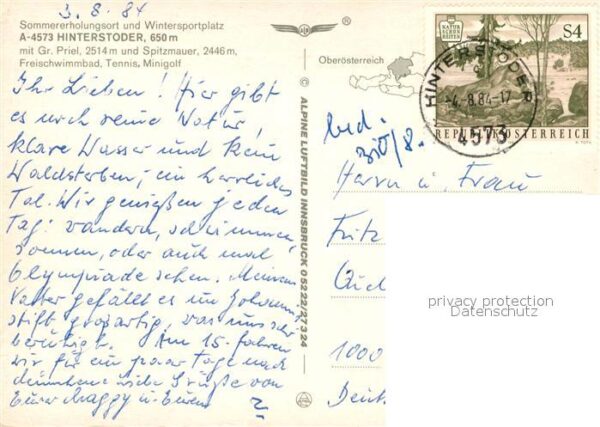 3.8.84
Sommererholungsort und Wintersportplatz
A-4573 HINTERSTODER, 650 m
mit Gr. Priel, 2514 m und Spitzmauer, 2446 m,
Freischwimmbad, Tennis, Minigolf
Oberösterreich
Ihr Lieben! Hier gibt
es noch reine Natur,
klare Wasser und kein
Waldsterben; ein herrliches
Tal. Wir genießen jeden
Tag: wandern, schwimmen,
sonnen, oder auch mal
Olympiade sehen. Meinem
Vater gefällt es im
stift großartig, was uns sehr
beruhigt. Am 15. fahren
wir für ein paar Tage nach
Grüße von
Eurer Maggy u.
© ALPINE LUFTBILD INNSBRUCK 05222/27324
NATUR
SCHÖN
HEITEN
S4
REPUBLIK ÖSTERREICH
HINTERSTODER
-4.-8.84-17
4573
bed.
30/8.
Herrn u. Frau
Fritz
1000
privacy protection
Datenschutz